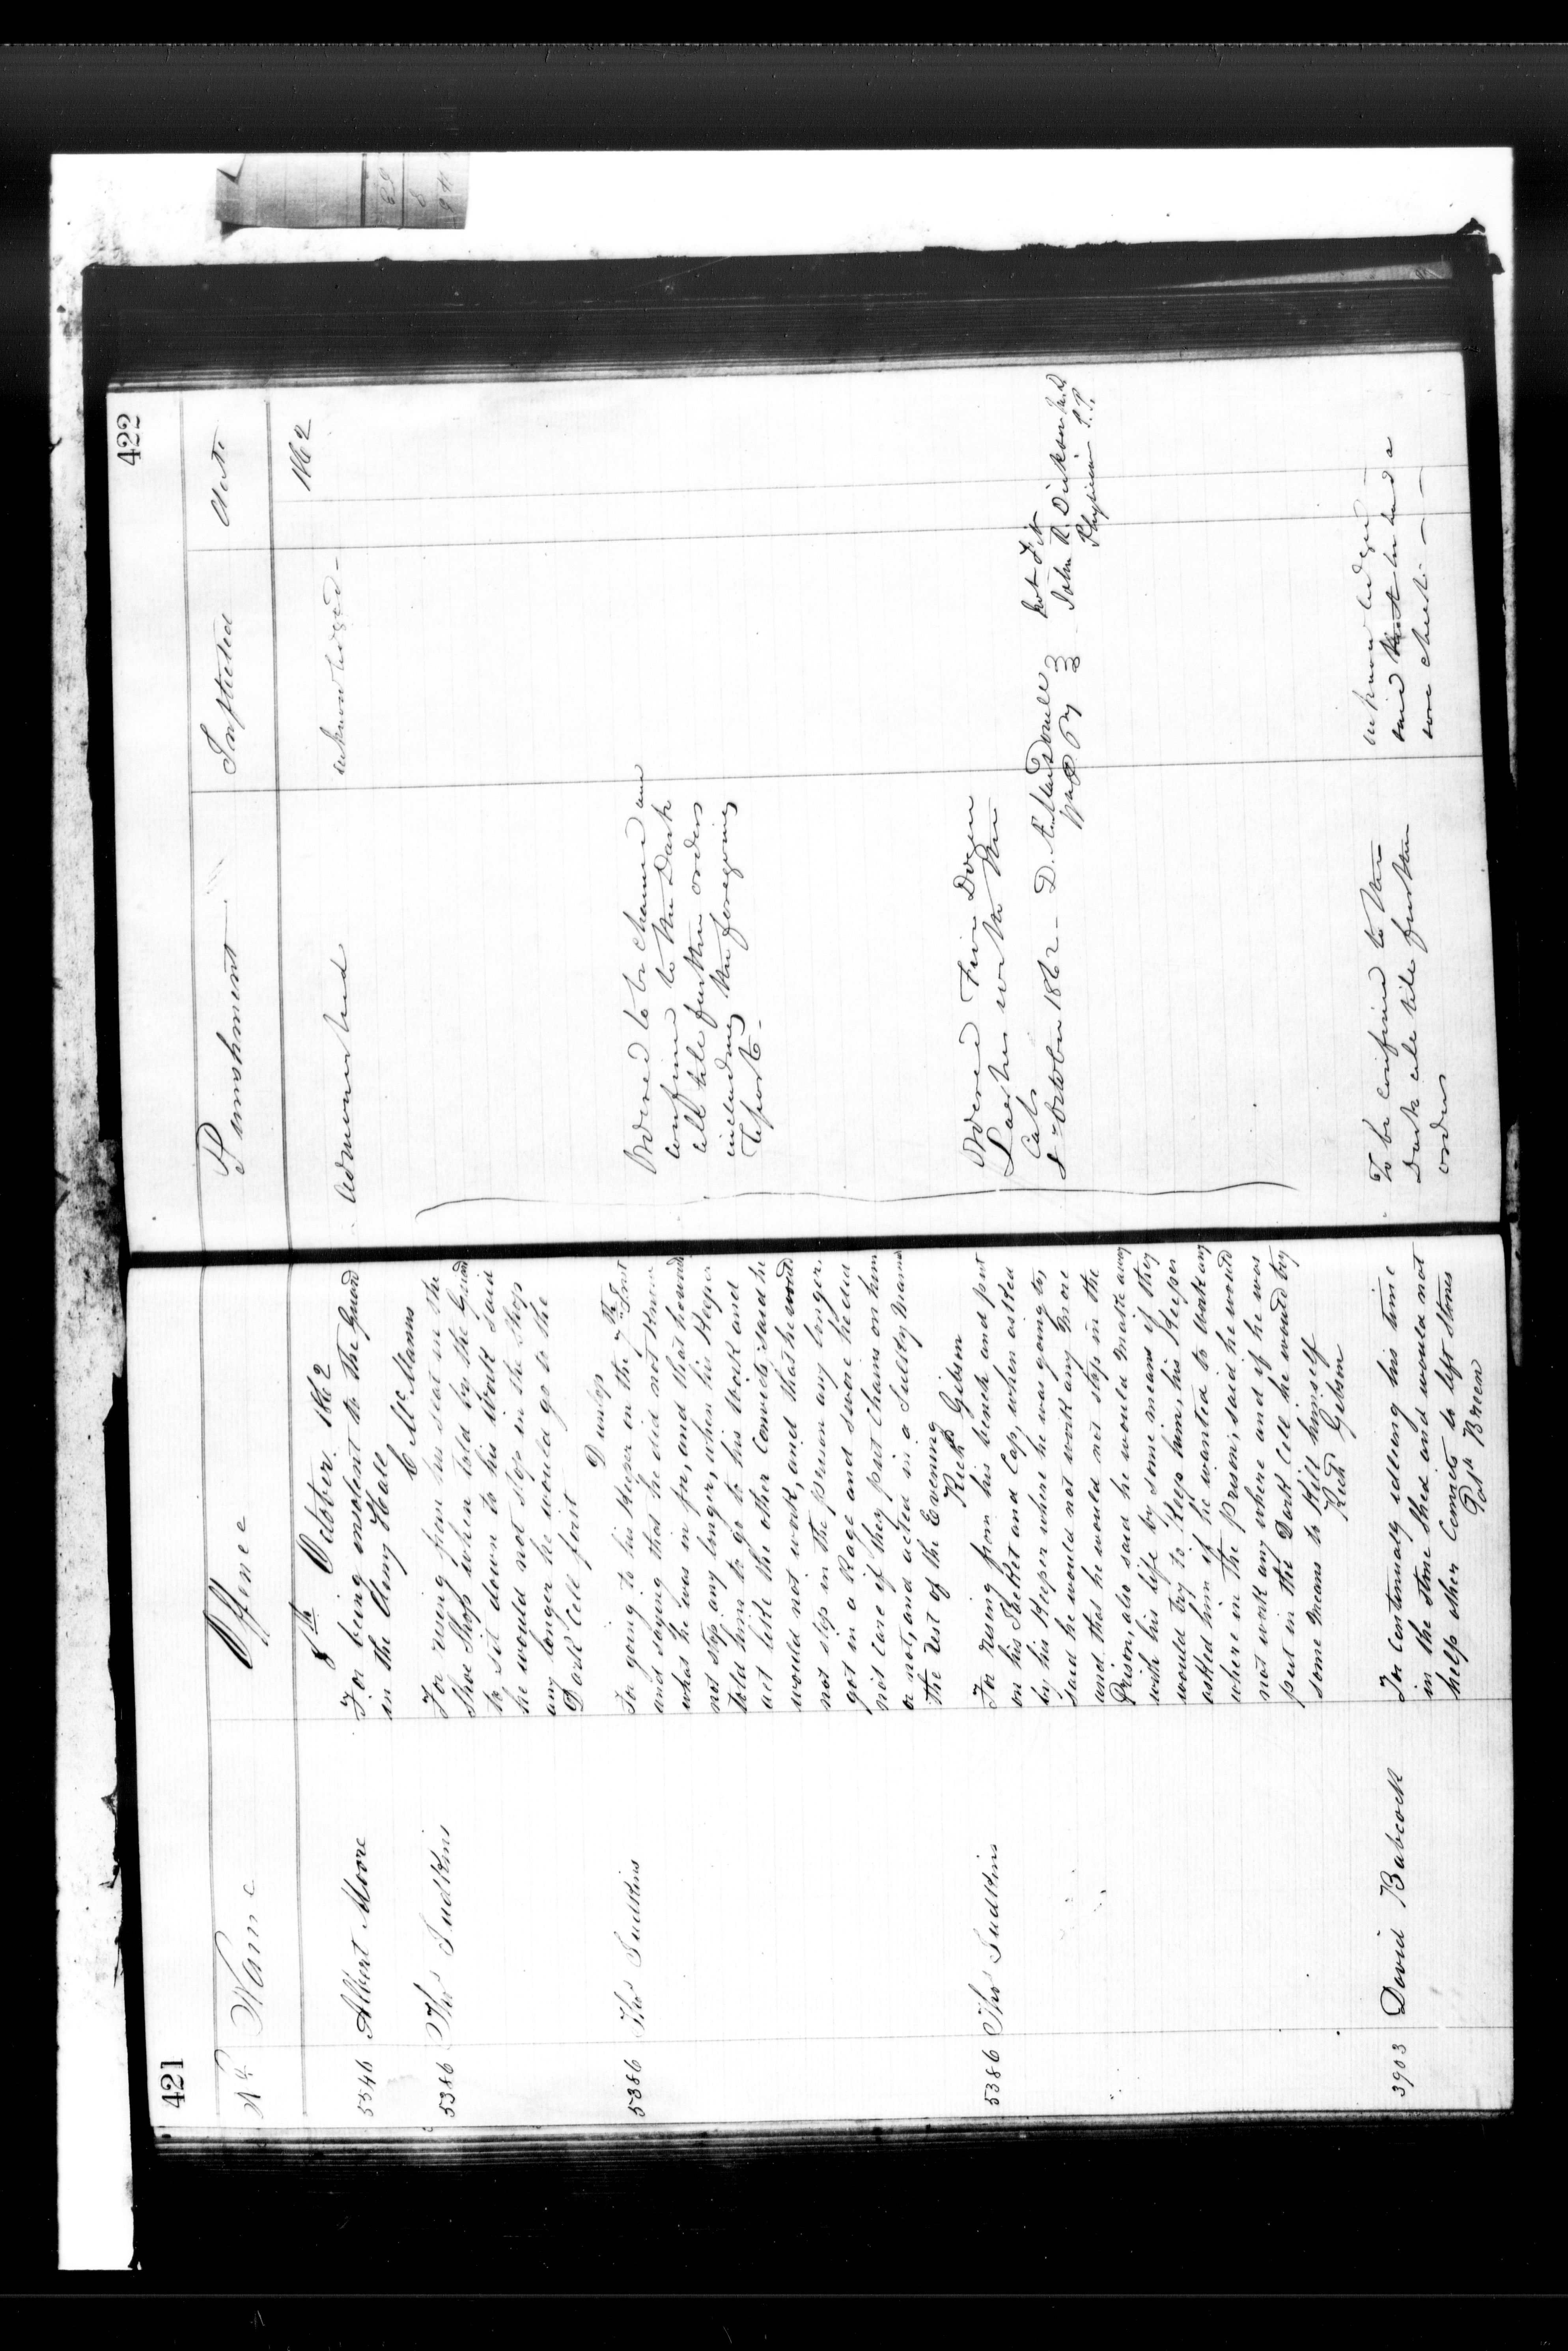 421
No Name Offence
8th October 1862
5546 Albert Moore For being insolent to the Guard
in the Dining Hall
C McManus
5386 Thos Judkins For rising from his seat in the
Shoe Shop when told by the Guard
to sit down to his Work said
he would not stop in the Shop
any longer he would go to the
Dark Cell first
Dunlop
5386 Thos Judkins For going to his Keeper on the 7th Inst
and saying that he did not know
what he was in for, and that he would
not stop any longer, when his Keeper
told him to go to his Work and
act like the other Convicts said he
would not work, and that he would
not stop in the Prison any longer.
got in a Rage and swore he did
not care if they put Chains on him
or not, and acted in a Sulky Manner
the rest of the Evening
Richd Gibson
5386 Thos Judkins For rising from his bench and put
on his Jacket and Cap, when asked
by his Keeper where he was going to,
said he would not work any More
and that he would not stop in the
Prison, also said he would Make away
with his life by some means if they
would try to Keep him, his Keeper
asked him if he wanted to work any
where in the Prison, said he would
not work any where and if he was
put in the Dark Cell he would try
some Means to Kill himself
Richd Gibson
3903 David Babcock For continualy idleing his time
in the stone Shed and would not
help other Convicts to lift Stones
Patk Breen
422
Punishment Inflicted Date
1862
Admonished acknowledged
Ordered to be chained and
confined to the Dark
cell till further orders
including the foregoing
Report
Ordered Five Dozen
Lashes with the
Cats
8 October 1862 - D. Æ. Macdonell
Not Fit
John R. Dickson M.D.
Physician P.P.
To be confined to the
Dark cell till further
orders
acknowledged
said that he had a
sore chest